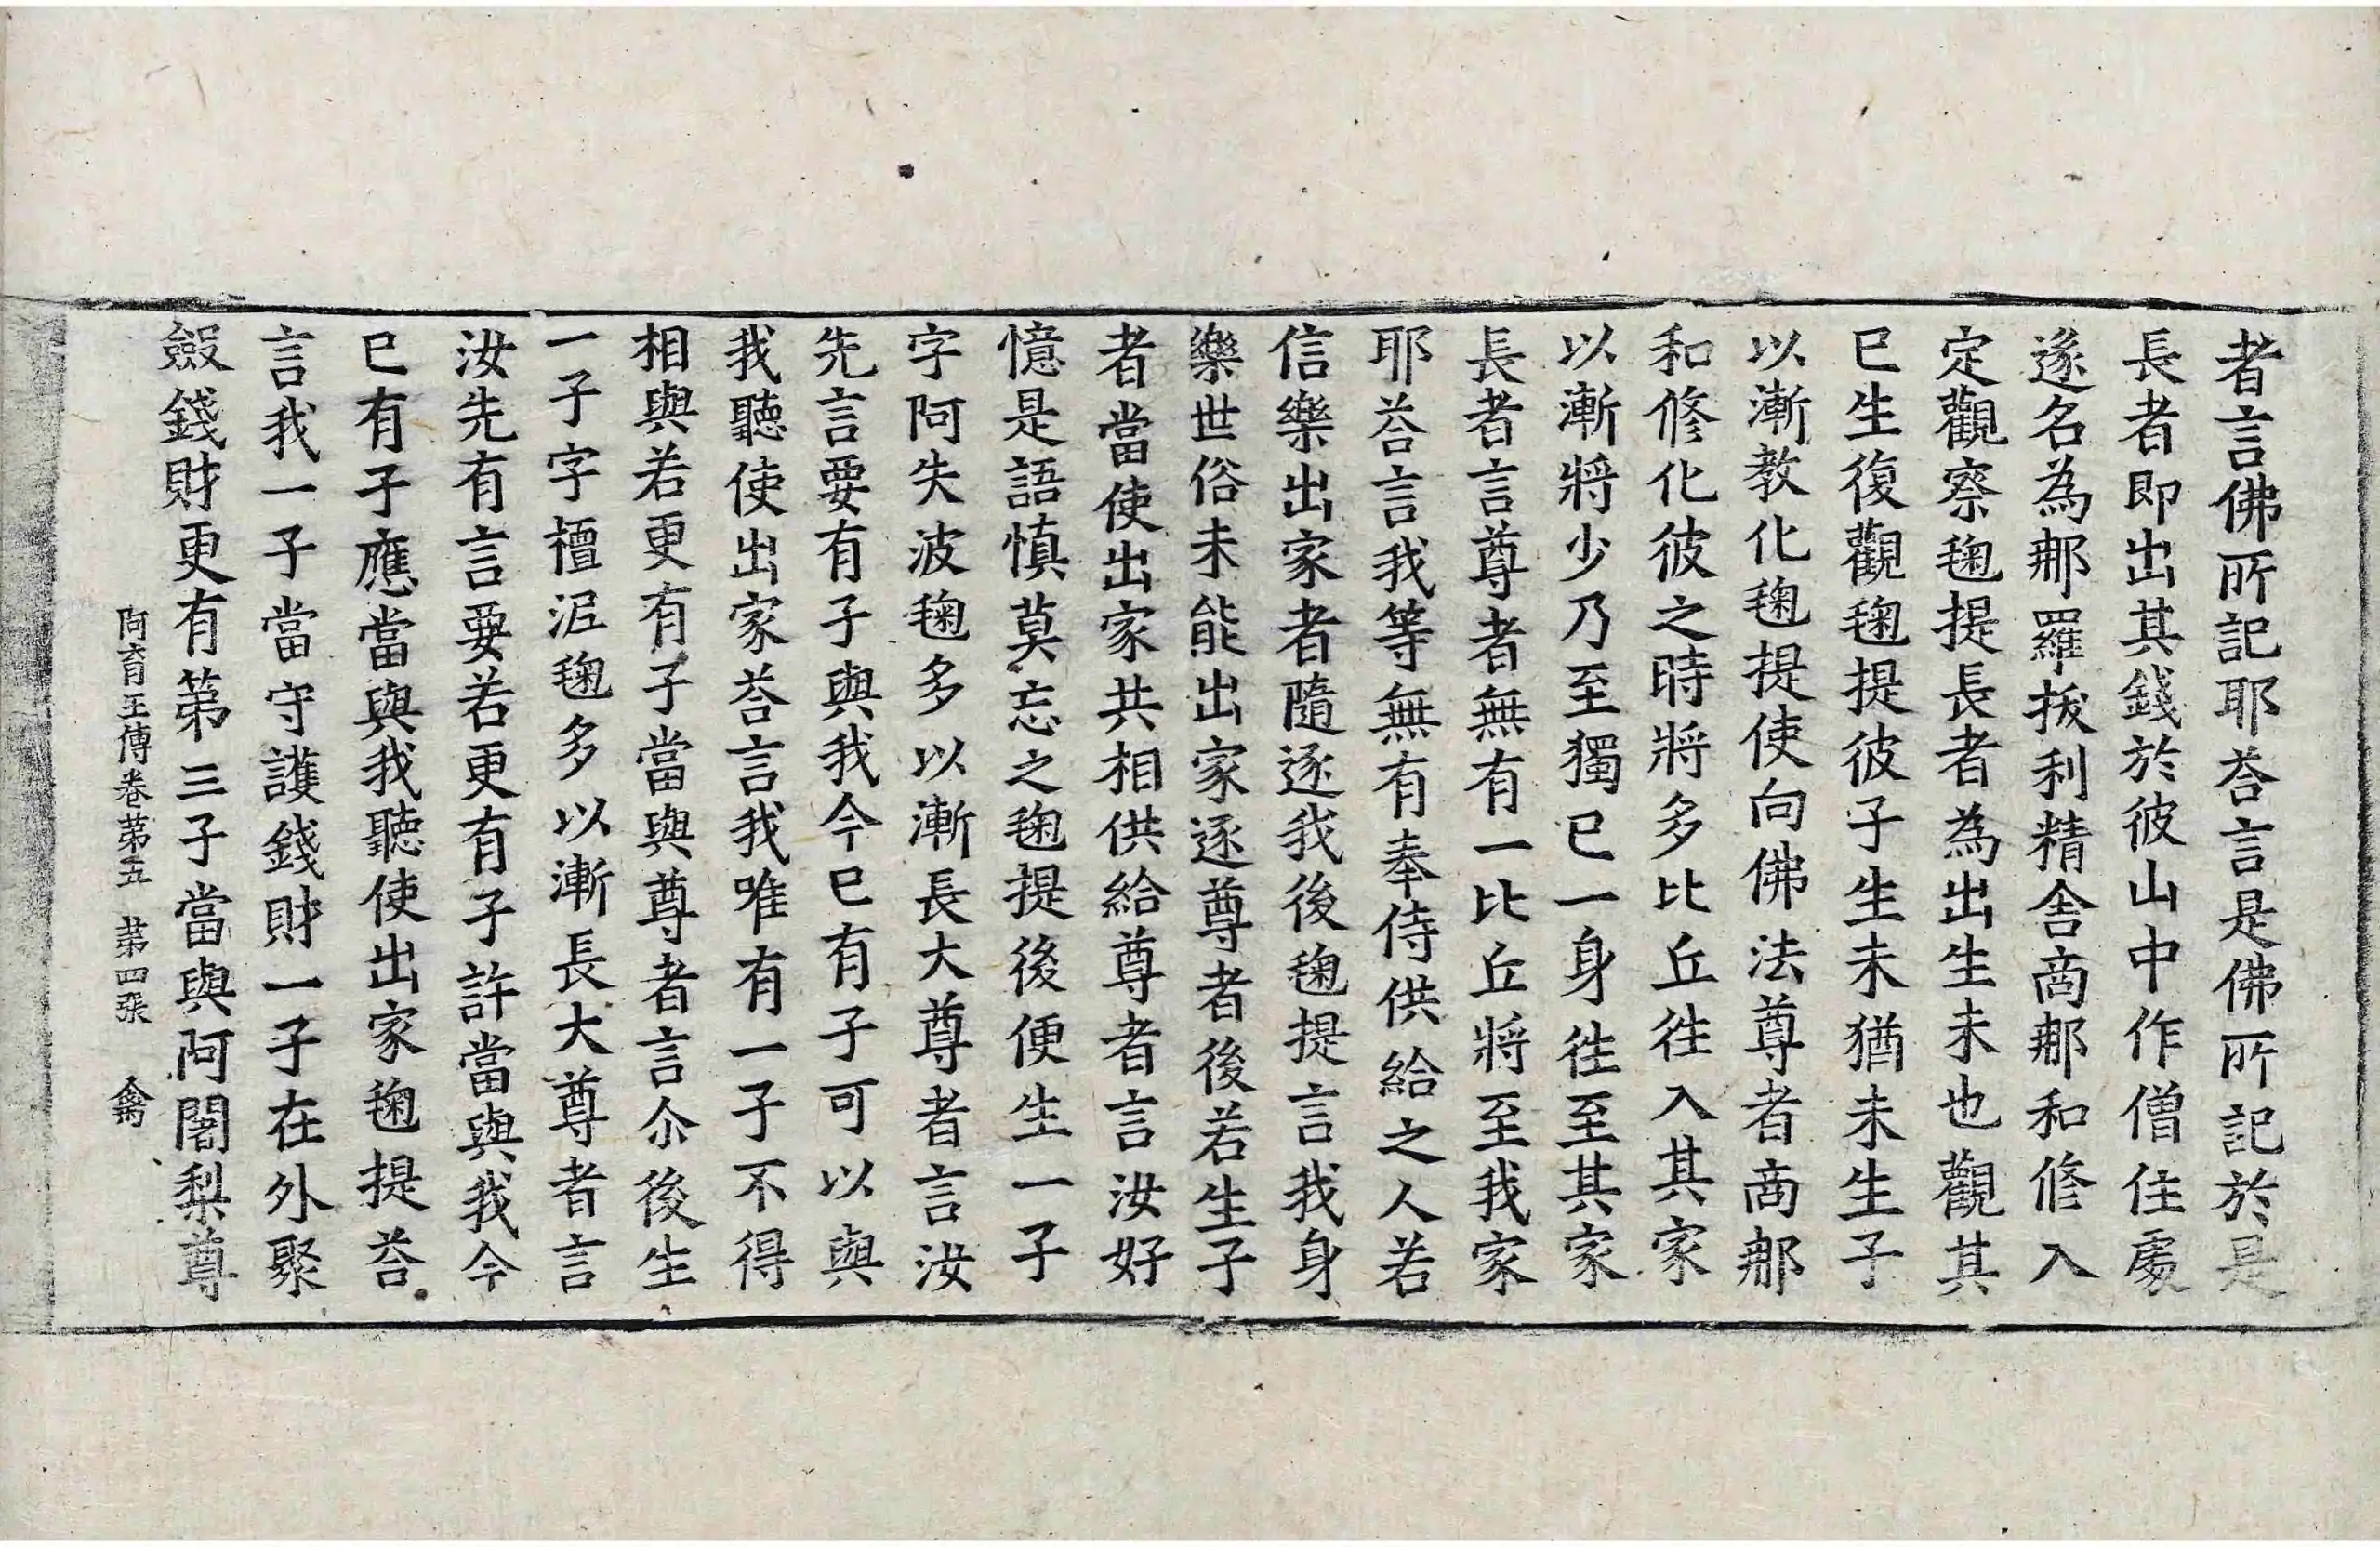 者言佛所記耶荅言是佛所記於是
長者即出其錢於彼山中作僧住處
遂名為那羅拔利精舍商那和修入
定觀察毱提長者為出生未也觀其
已生復觀毱提彼子生未猶未生子
以漸教化毱提使向佛法尊者商那
和修化彼之時將多比丘往入其家
以漸將少乃至獨已一身往至其家
長者言尊者無有一比丘將至我家
耶荅言我等無有奉侍供給之人若
信樂出家者隨逐我後毱提言我身
樂世俗未能出家逐尊者後若生子
者當使出家共相供給尊者言汝好
憶是語慎莫忘之毱提後便生一子
字阿失波毱多以漸長大尊者言汝
先言要有子與我今已有子可以與
我聽使出家荅言我唯有一子不得
相與若更有子當與尊者言尒後生
一子字檀泥毱多以漸長大尊者言
汝先有言要若更有子許當與我今
已有子應當與我聽使出家毱提荅
言我一子當守護錢財一子在外聚
斂錢財更有第三子當與阿闍梨尊
阿育王傳卷第五 第四張 禽